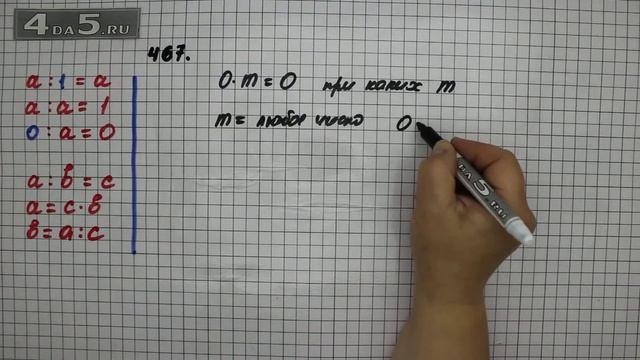 4DA5.RU
467.
a : 1 = a
a : a = 1
0 : a = 0
a : в = c
a = c · в
в = a : c
0 · m = 0 при каких m
m = любое число 0 ·
4DA5.RU